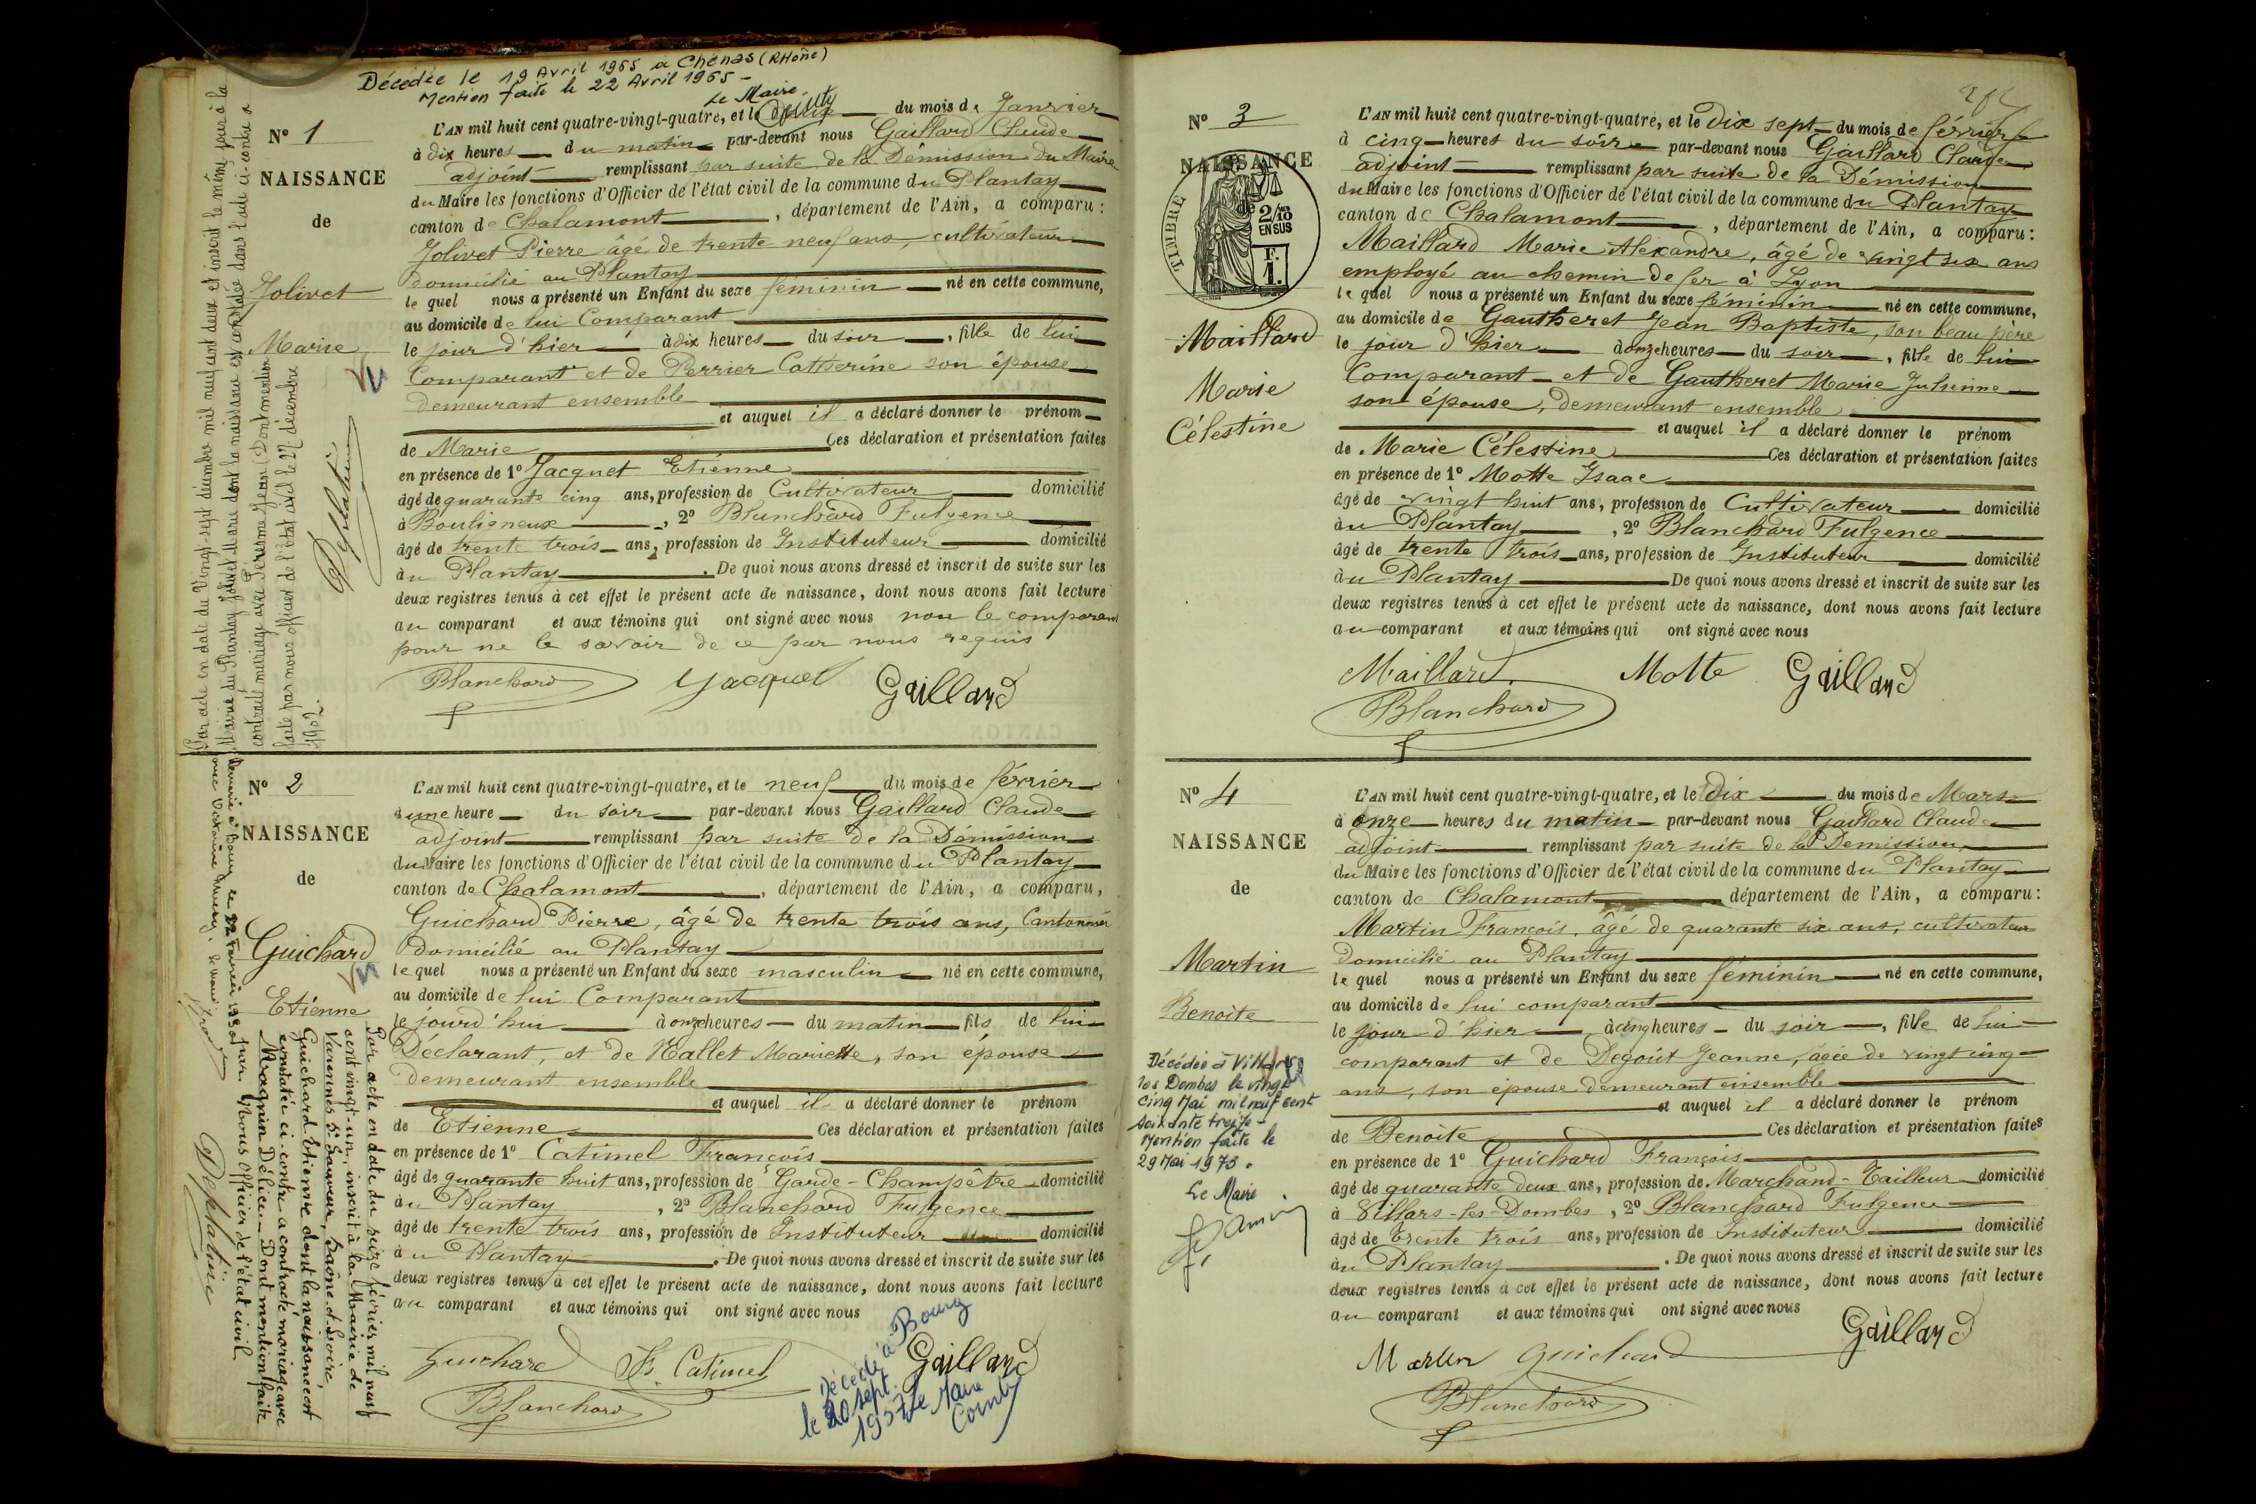 Décédée le 19 Avril 1965 a Chénas (Rhône)
Mention faite le 22 Avril 1965 -
Le Maire.
N° 1
NAISSANCE
de
Jolivet
Marie
Par acte en date du Vingt-sept décembre mil neuf cent deux et inscrit le même jour à la
Mairie du Plantay Jolivet Marie dont la naissance est constatée dans l'acte ci-contre a
contracté mariage avec Jean (Dont mention
faite par nous officier de l'état civil le 27 décembre
1902.
L'AN mil huit cent quatre-vingt-quatre, et le du mois de Janvier
à dix heures du matin par-devant nous Gaillard Claude
adjoint remplissant par suite de la Démission du Maire
du Maire les fonctions d'Officier de l'état civil de la commune du Plantay
canton de Chalamont, département de l'Ain, a comparu :
Jolivet Pierre âgé de trente neuf ans, cultivateur
domicilié au Plantay
le quel nous a présenté un Enfant du sexe féminin né en cette commune,
au domicile de lui Comparant
le jour d'hier à dix heures du soir, fille de lui
Comparant et de Perrier Catherine son épouse
demeurant ensemble
et auquel il a déclaré donner le prénom
de Marie Ces déclaration et présentation faites
en présence de 1° Jacquet Etienne
âgé de quarante cinq ans, profession de Cultivateur domicilié
à Bouligneux, 2° Blanchard Fulgence
âgé de trente trois ans, profession de Instituteur domicilié
au Plantay. De quoi nous avons dressé et inscrit de suite sur les
deux registres tenus à cet effet le présent acte de naissance, dont nous avons fait lecture
au comparant et aux témoins qui ont signé avec nous non le comparant
pour ne le savoir de ce par nous requis
Blanchard Jacquet Gaillard
N° 2
NAISSANCE
de
Guichard
Etienne
Par acte en date du seize février mil neuf
cent vingt-un, inscrit à la Mairie de
Varennes St Sauveur, Saône-et-Loire,
Guichard Etienne dont la naissance est
constatée ci-contre a contracté mariage avec
Magnin Délice - Dont mention faite
par Nous officier de l'état civil
L'AN mil huit cent quatre-vingt-quatre, et le neuf du mois de février
à une heure du soir par-devant nous Gaillard Claude
adjoint remplissant par suite de la Démission
du Maire les fonctions d'Officier de l'état civil de la commune du Plantay
canton de Chalamont, département de l'Ain, a comparu,
Guichard Pierre, âgé de trente trois ans, Cantonnier
domicilié au Plantay
le quel nous a présenté un Enfant du sexe masculin né en cette commune,
au domicile de lui Comparant
le jourd'hui à onze heures du matin fils de lui
Déclarant, et de Nallet Mariette, son épouse
demeurant ensemble
et auquel il a déclaré donner le prénom
de Etienne Ces déclaration et présentation faites
en présence de 1° Catimel François
âgé de quarante huit ans, profession de Garde-Champêtre domicilié
au Plantay, 2° Blanchard Fulgence
âgé de trente trois ans, profession de Instituteur domicilié
au Plantay. De quoi nous avons dressé et inscrit de suite sur les
deux registres tenus à cet effet le présent acte de naissance, dont nous avons fait lecture
au comparant et aux témoins qui ont signé avec nous
Guichard Fs Catimel Gaillard
Blanchard
Décédé à Bourg
le 20 sept.
1957 Le Maire
N° 3
NAISSANCE
de
TIMBRE
2/10 EN SUS
F. 1.
Maillard
Marie
Célestine
L'AN mil huit cent quatre-vingt-quatre, et le Dix sept du mois de février
à cinq heures du soir par-devant nous Gaillard Claude
adjoint remplissant par suite de la Démission
du Maire les fonctions d'Officier de l'état civil de la commune du Plantay
canton de Chalamont, département de l'Ain, a comparu :
Maillard Marie Alexandre, âgé de vingt six ans
employé au chemin de fer à Lyon
le quel nous a présenté un Enfant du sexe féminin né en cette commune,
au domicile de Gautheret Jean Baptiste, son beau père
le jour d'hier à onze heures du soir, fille de lui
Comparant et de Gautheret Marie Julienne
son épouse, demeurant ensemble
et auquel il a déclaré donner le prénom
de Marie Célestine Ces déclaration et présentation faites
en présence de 1° Motte Isaac
âgé de vingt huit ans, profession de Cultivateur domicilié
au Plantay, 2° Blanchard Fulgence
âgé de trente trois ans, profession de Instituteur domicilié
au Plantay De quoi nous avons dressé et inscrit de suite sur les
deux registres tenus à cet effet le présent acte de naissance, dont nous avons fait lecture
au comparant et aux témoins qui ont signé avec nous
Maillard Motte Gaillard
Blanchard
N° 4
NAISSANCE
de
Martin
Benoite
Décédée à Villars
les Dombes le vingt
cinq Mai mil neuf cent
soixante treize -
Mention faite le
29 Mai 1973.
Le Maire.
L'AN mil huit cent quatre-vingt-quatre, et le dix du mois de Mars
à onze heures du matin par-devant nous Gaillard Claude
adjoint remplissant par suite de la Démission
du Maire les fonctions d'Officier de l'état civil de la commune du Plantay
canton de Chalamont département de l'Ain, a comparu :
Martin François, âgé de quarante six ans, cultivateur
domicilié au Plantay
le quel nous a présenté un Enfant du sexe féminin né en cette commune,
au domicile de lui comparant
le jour d'hier, à cinq heures du soir, fille de lui
comparant et de Degoût Jeanne, âgée de vingt cinq
ans, son épouse demeurant ensemble
et auquel il a déclaré donner le prénom
de Benoite Ces déclaration et présentation faites
en présence de 1° Guichard François
âgé de quarante deux ans, profession de Marchand-Tailleur domicilié
à Villars-les-Dombes, 2° Blanchard Fulgence
âgé de trente trois ans, profession de Instituteur domicilié
au Plantay. De quoi nous avons dressé et inscrit de suite sur les
deux registres tenus à cet effet le présent acte de naissance, dont nous avons fait lecture
au comparant et aux témoins qui ont signé avec nous
Martin Guichard Gaillard
Blanchard